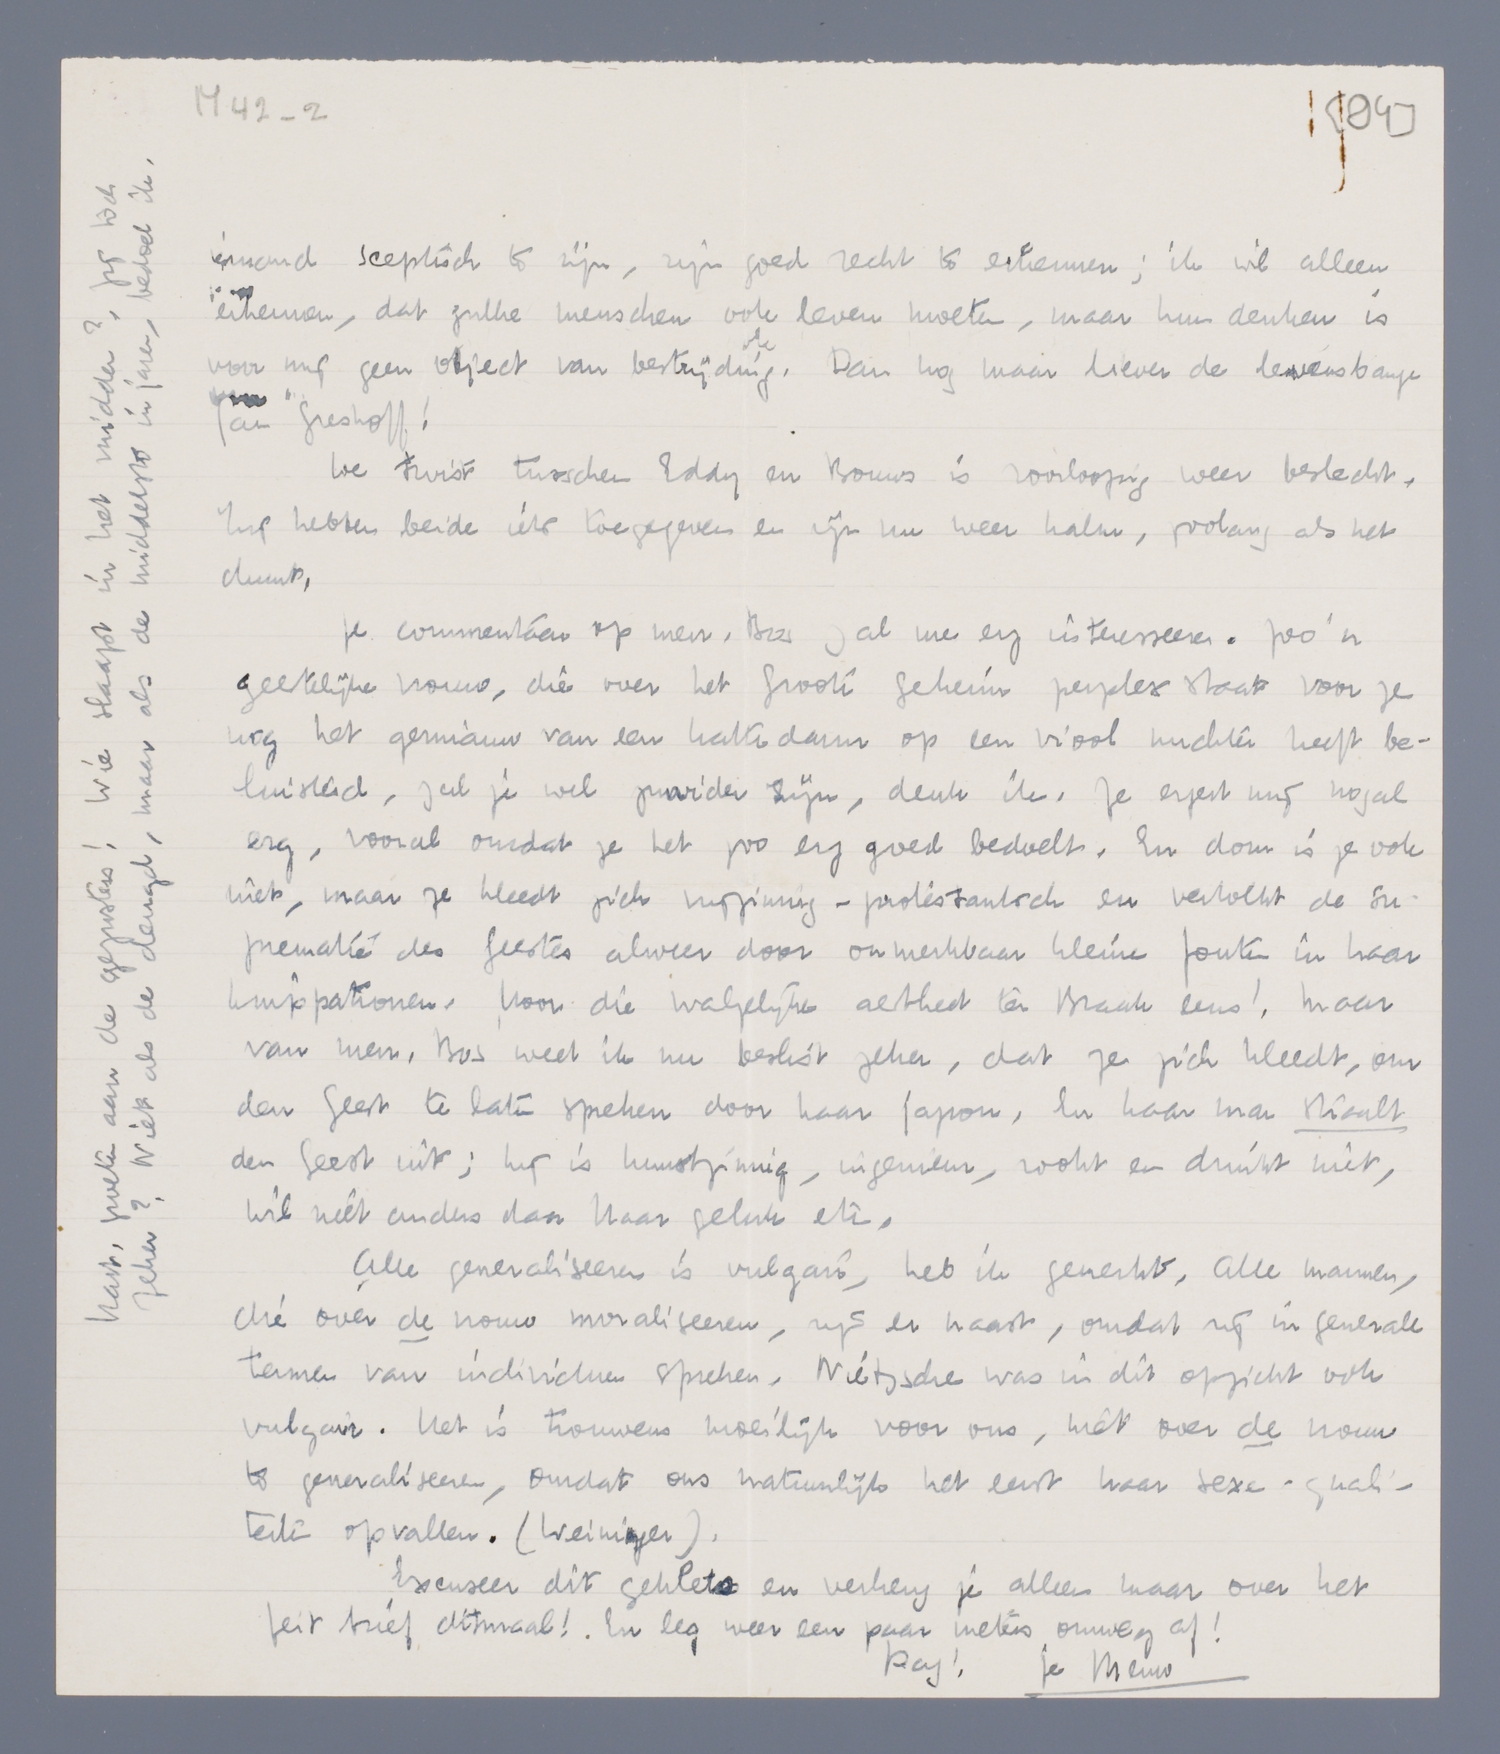 M 42-2
[84]
iemand sceptisch te zijn, zijn goed recht te erkennen; ik wil alleen
erkennen, dat zulke menschen ook leven moeten, maar hun denken is
voor mij geen object van bestrijding ook. Dan nog maar liever de levensbange
Jan Greshoff!
De twist tusschen Eddy en Bouws is voorloopig weer beslecht.
Zij hebben beide iets toegegeven en zijn nu weer kalm, zoolang als het
duurt.
Je commentaar op mevr. Bos zal me erg interesseeren. Zoo'n
geestelijke vrouw, die over het groote geheim perplex staat voor ze
nog het gemiauw van een kattedarm op een viool nuchter heeft be-
luisterd, zul je wel zuuvider zijn, denk ik. Ze ergert mij nogal
erg, vooral omdat ze het zoo erg goed bedoelt. En dom is ze ook
niet, maar ze kleedt zich vrijzinnig-protestantsch en vertolkt de su-
prematie des geestes alweer door onmerkbaar kleine fouten in haar
knippatronen. Hoor die walgelijke aestheet ter Braak eens! Maar
van mevr. Bos weet ik nu beslist zeker, dat ze zich kleedt, om
den geest te laten spreken door haar japon. En haar man straalt
den geest uit; hij is kunstzinnig, ingenieur, rookt en drinkt niet,
wil niet anders dan haar geluk etc.
Alle generaliseeren is vulgair, heb ik gemerkt. Alle mannen,
die over de vrouw moraliseeren, zijn er naast, omdat zij in generale
termen van individuen spreken. Nietzsche was in dit opzicht ook
vulgair. Het is trouwens moeilijk voor ons, niet over de vrouw
te generaliseeren, omdat ons natuurlijk het eerst haar sexe-quali-
teiten opvallen. (Weininger).
Excuseer dit geklets en verheug je alleen maar over het
feit brief ditmaal! En leg weer een paar meters omweg af!
Dag! Je Menno
Hart. groeten aan de gezusters! Wie slaapt in het midden? Jij toch
zeker? Niet als de deugd, maar als de middelste in jaren, bedoel ik.